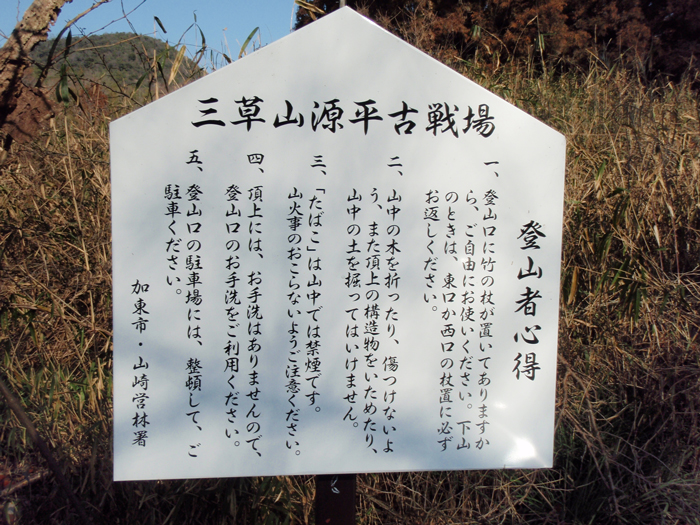 三草山源平古戦場
登山者心得
一、登山口に竹の杖が置いてありますか
ら、ご自由にお使いください。下山
のときは、東口か西口の杖置に必ず
お返しください。
二、山中の木を折ったり、傷つけないよ
う、また頂上の構造物をいためたり、
山中の土を掘ってはいけません。
三、「たばこ」は山中では禁煙です。
山火事のおこらないようご注意ください。
四、頂上には、お手洗はありませんので、
登山口のお手洗をご利用ください。
五、登山口の駐車場には、整頓して、ご
駐車ください。
加東市・山崎営林署